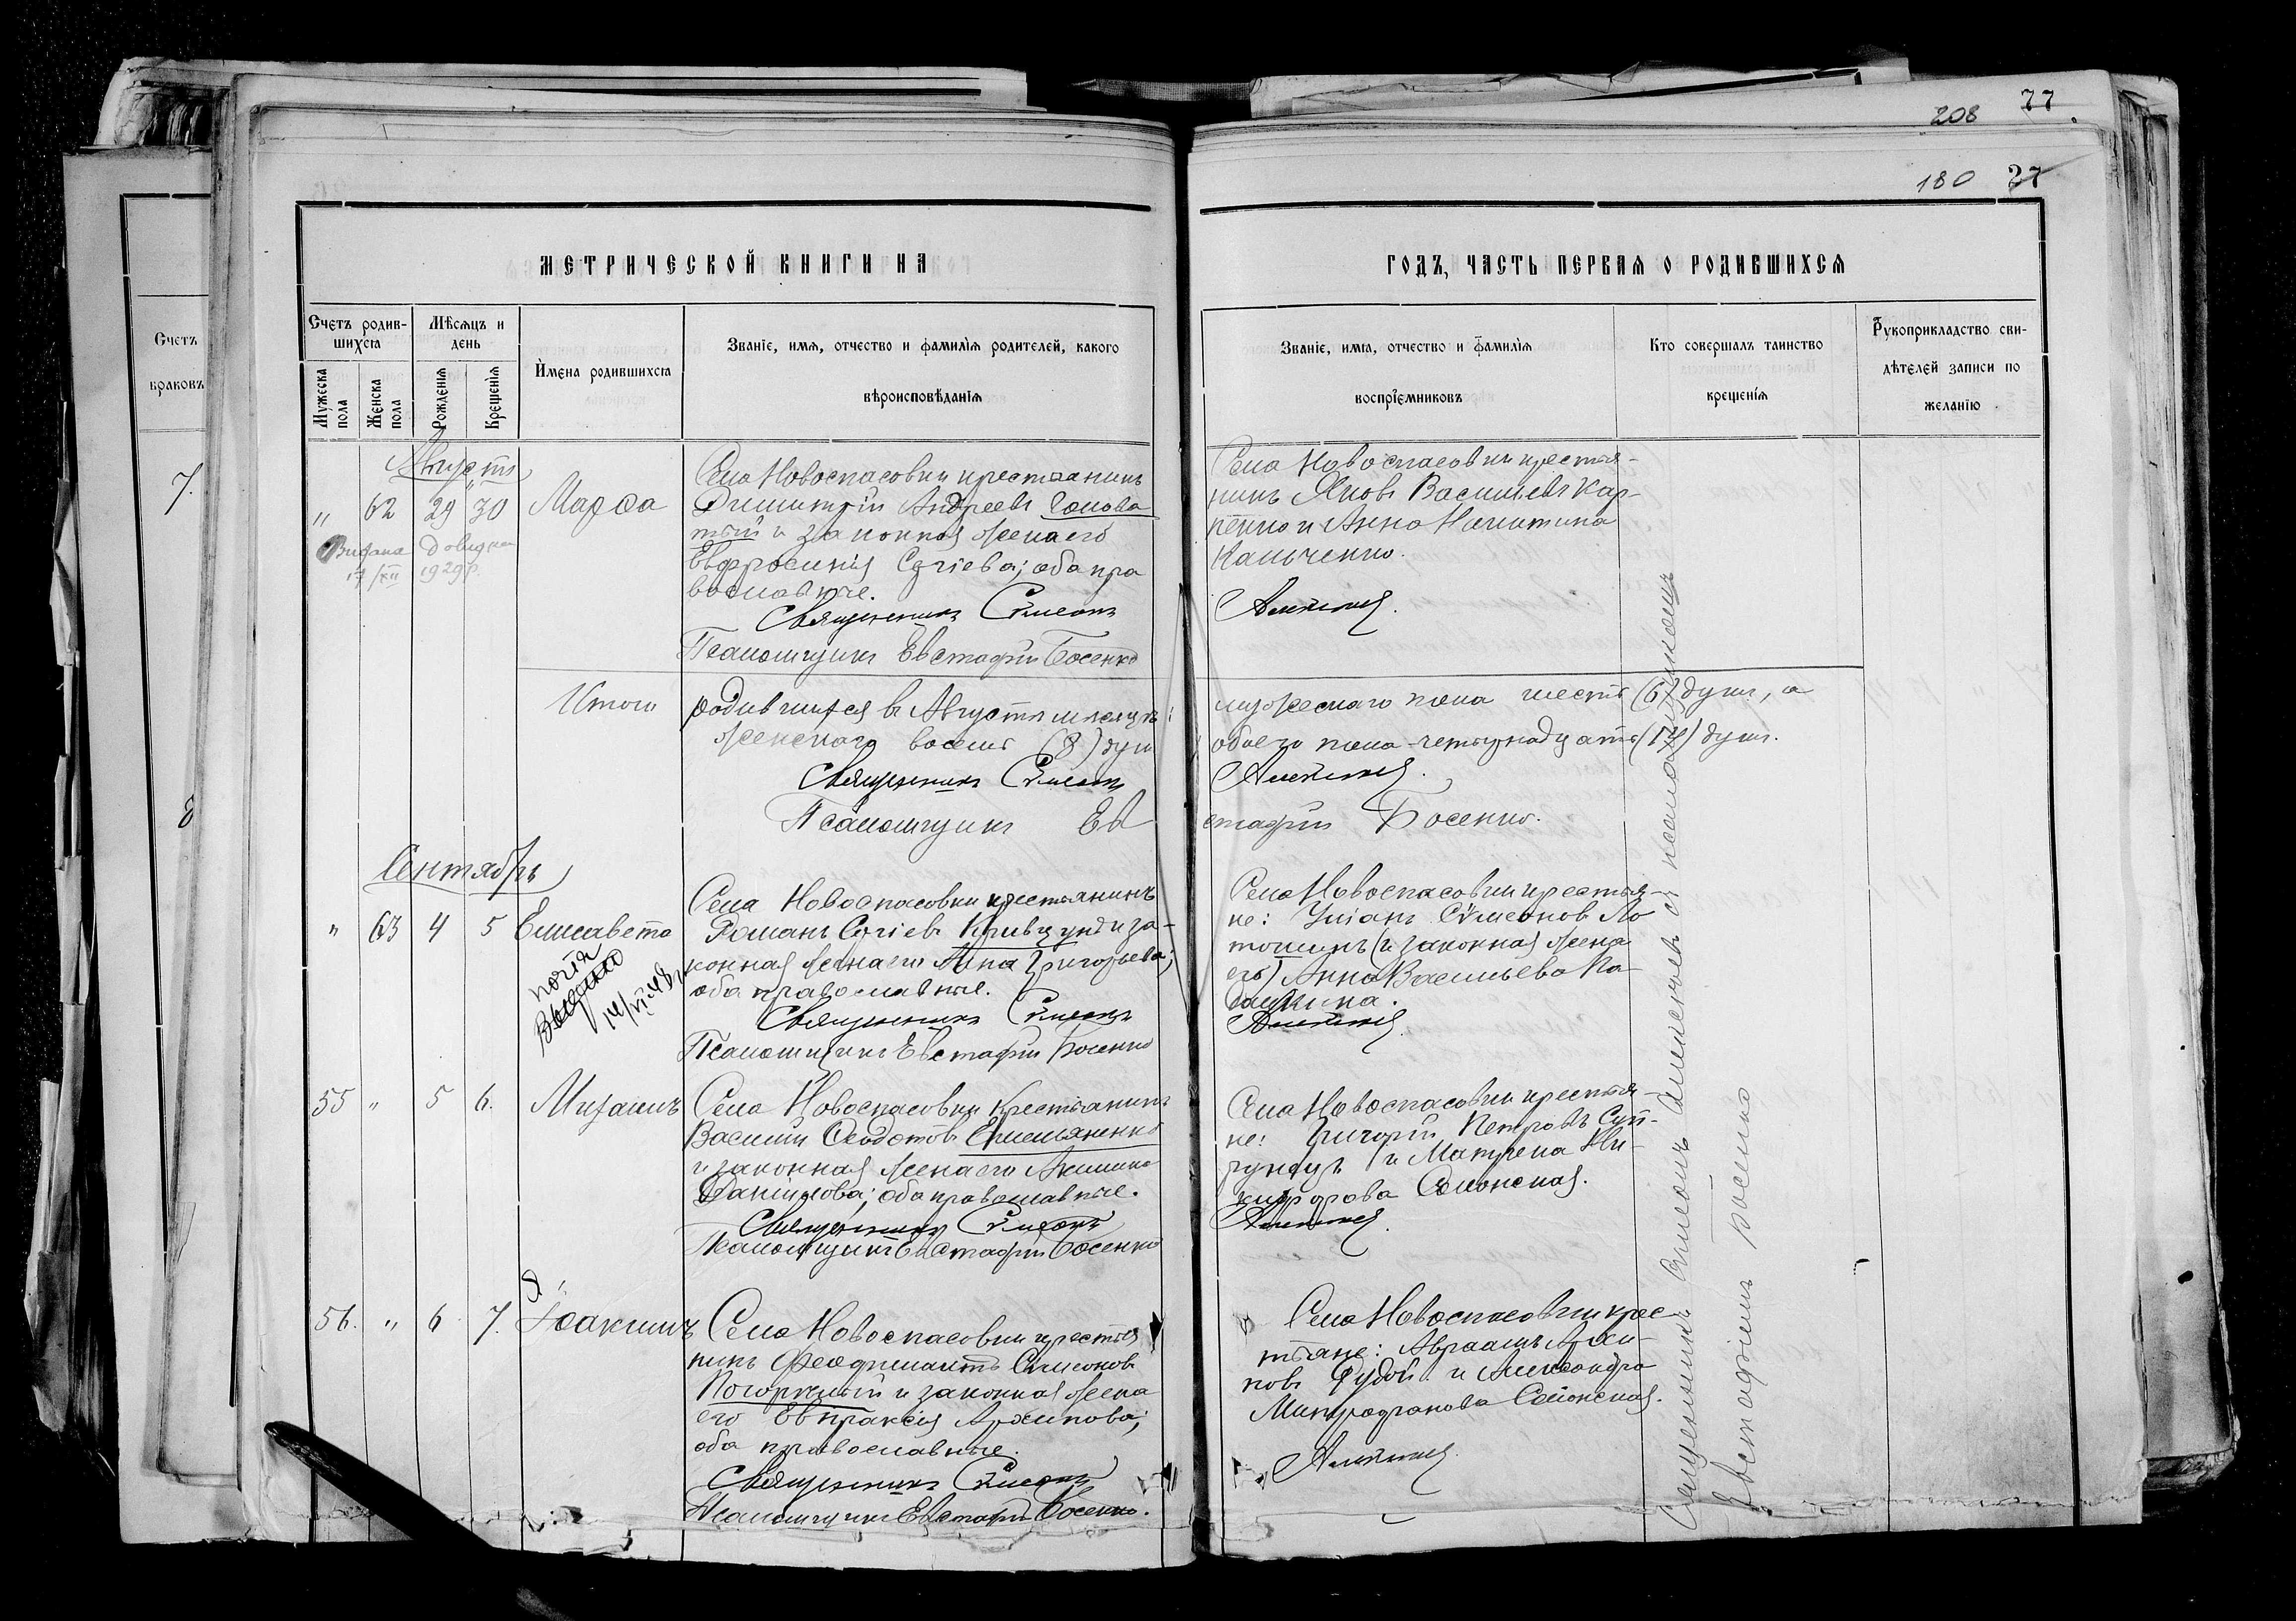 77
208
180 27
МЕТРИЧЕСКОЙ КНИГИ НА
ГОДЪ, ЧАСТЬ ПЕРВАЯ О РОДИВШИХСЯ
Счетъ
браковъ
7.
8
Счетъ родив-
шихся
Мужеска пола
Женска пола
Мѣсяцъ и
день
Рожденія
Крещенія
Имена родившихся
Званіе, имя, отчество и фамилія родителей, какого
вѣроисповѣданія
Званіе, имя, отчество и фамилія
воспріемниковъ
Кто совершалъ таинство
крещенія
Рукоприкладство сви-
дѣтелей записи по
желанію
Августъ
" 62 29 30 Марѳа
Видана довидка
17/XII 1929р.
Села Новоспасовки крестьянинъ
Димитрій Андреевъ Голова
тый и законная жена его
Евфросинія Сергіева; оба пра
вославные.
Священникъ Сѵмеонъ
Псаломщикъ Евстафій Босенко
Села Новоспасовки крестья-
нинъ Яковъ Васильевъ Кар-
пенко и Анна Никитина
Кальченко.
Итого родившихся въ Августѣ мѣсяцѣ:
женскаго восемь (8) душъ
Священникъ Сѵмеонъ
Псаломщикъ Ев
мужескаго пола шесть (6) душъ, а
обоего пола четырнадцать (14) душъ.
стафій Босенко.
Сентябрь
" 63 4 5 Елисавета
14/VI 48г
Села Новоспасовки крестьянинъ
Романъ Сергіевъ Кривцунъ и за-
конная жена его Анна Григорьева;
оба православные.
Священникъ Сѵмеонъ
Псаломщикъ Евстафій Босенко
Села Новоспасовки крестья-
не: Уліанъ Сѵмеонов Ло
(и законная жена
его) Анна Васильева
55 " 5 6. Михаилъ
Села Новоспасовки крестьянинъ
Василій Ѳеодотовъ Емельяненко
и законная жена его Акилина
Даніилова; оба православные.
Священникъ Сѵмеонъ
Псаломщикъ Евстафій Босенко
Села Новоспасовки крестья-
не: Григорій Петровъ Суп-
рунецъ и Матрена Ни-
кифорова Салонская.
56. " 6 7. Іоакимъ
Села Новоспасовки крестья
нинъ Сѵмеоновъ
и законная жена
его Евпраксія Архипова;
оба православные.
Священникъ Сѵмеонъ
Псаломщикъ Евстафій Босенко.
Села Новоспасовки крес
тьяне: Авраамъ Архи-
повъ Рудой и Александра
Митрофанова Салонская.
Священникъ Сѵмеонъ съ псаломщикомъ
Евстафіемъ Босенко